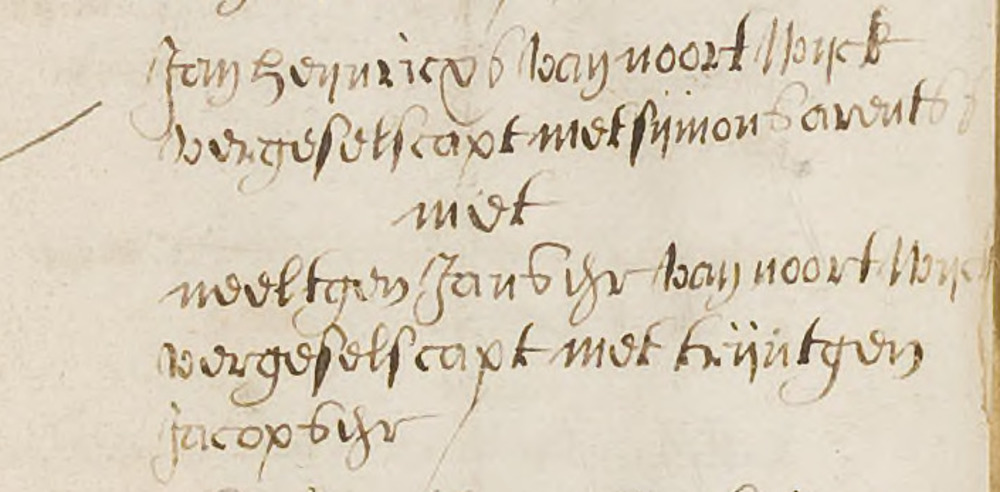 Jan heijnricxs van noort Wijck
vergeselscapt met sijmon arents
met
neeltgen Jans dr van noort Wijck
vergeselscapt met trijntgen
jacops dr